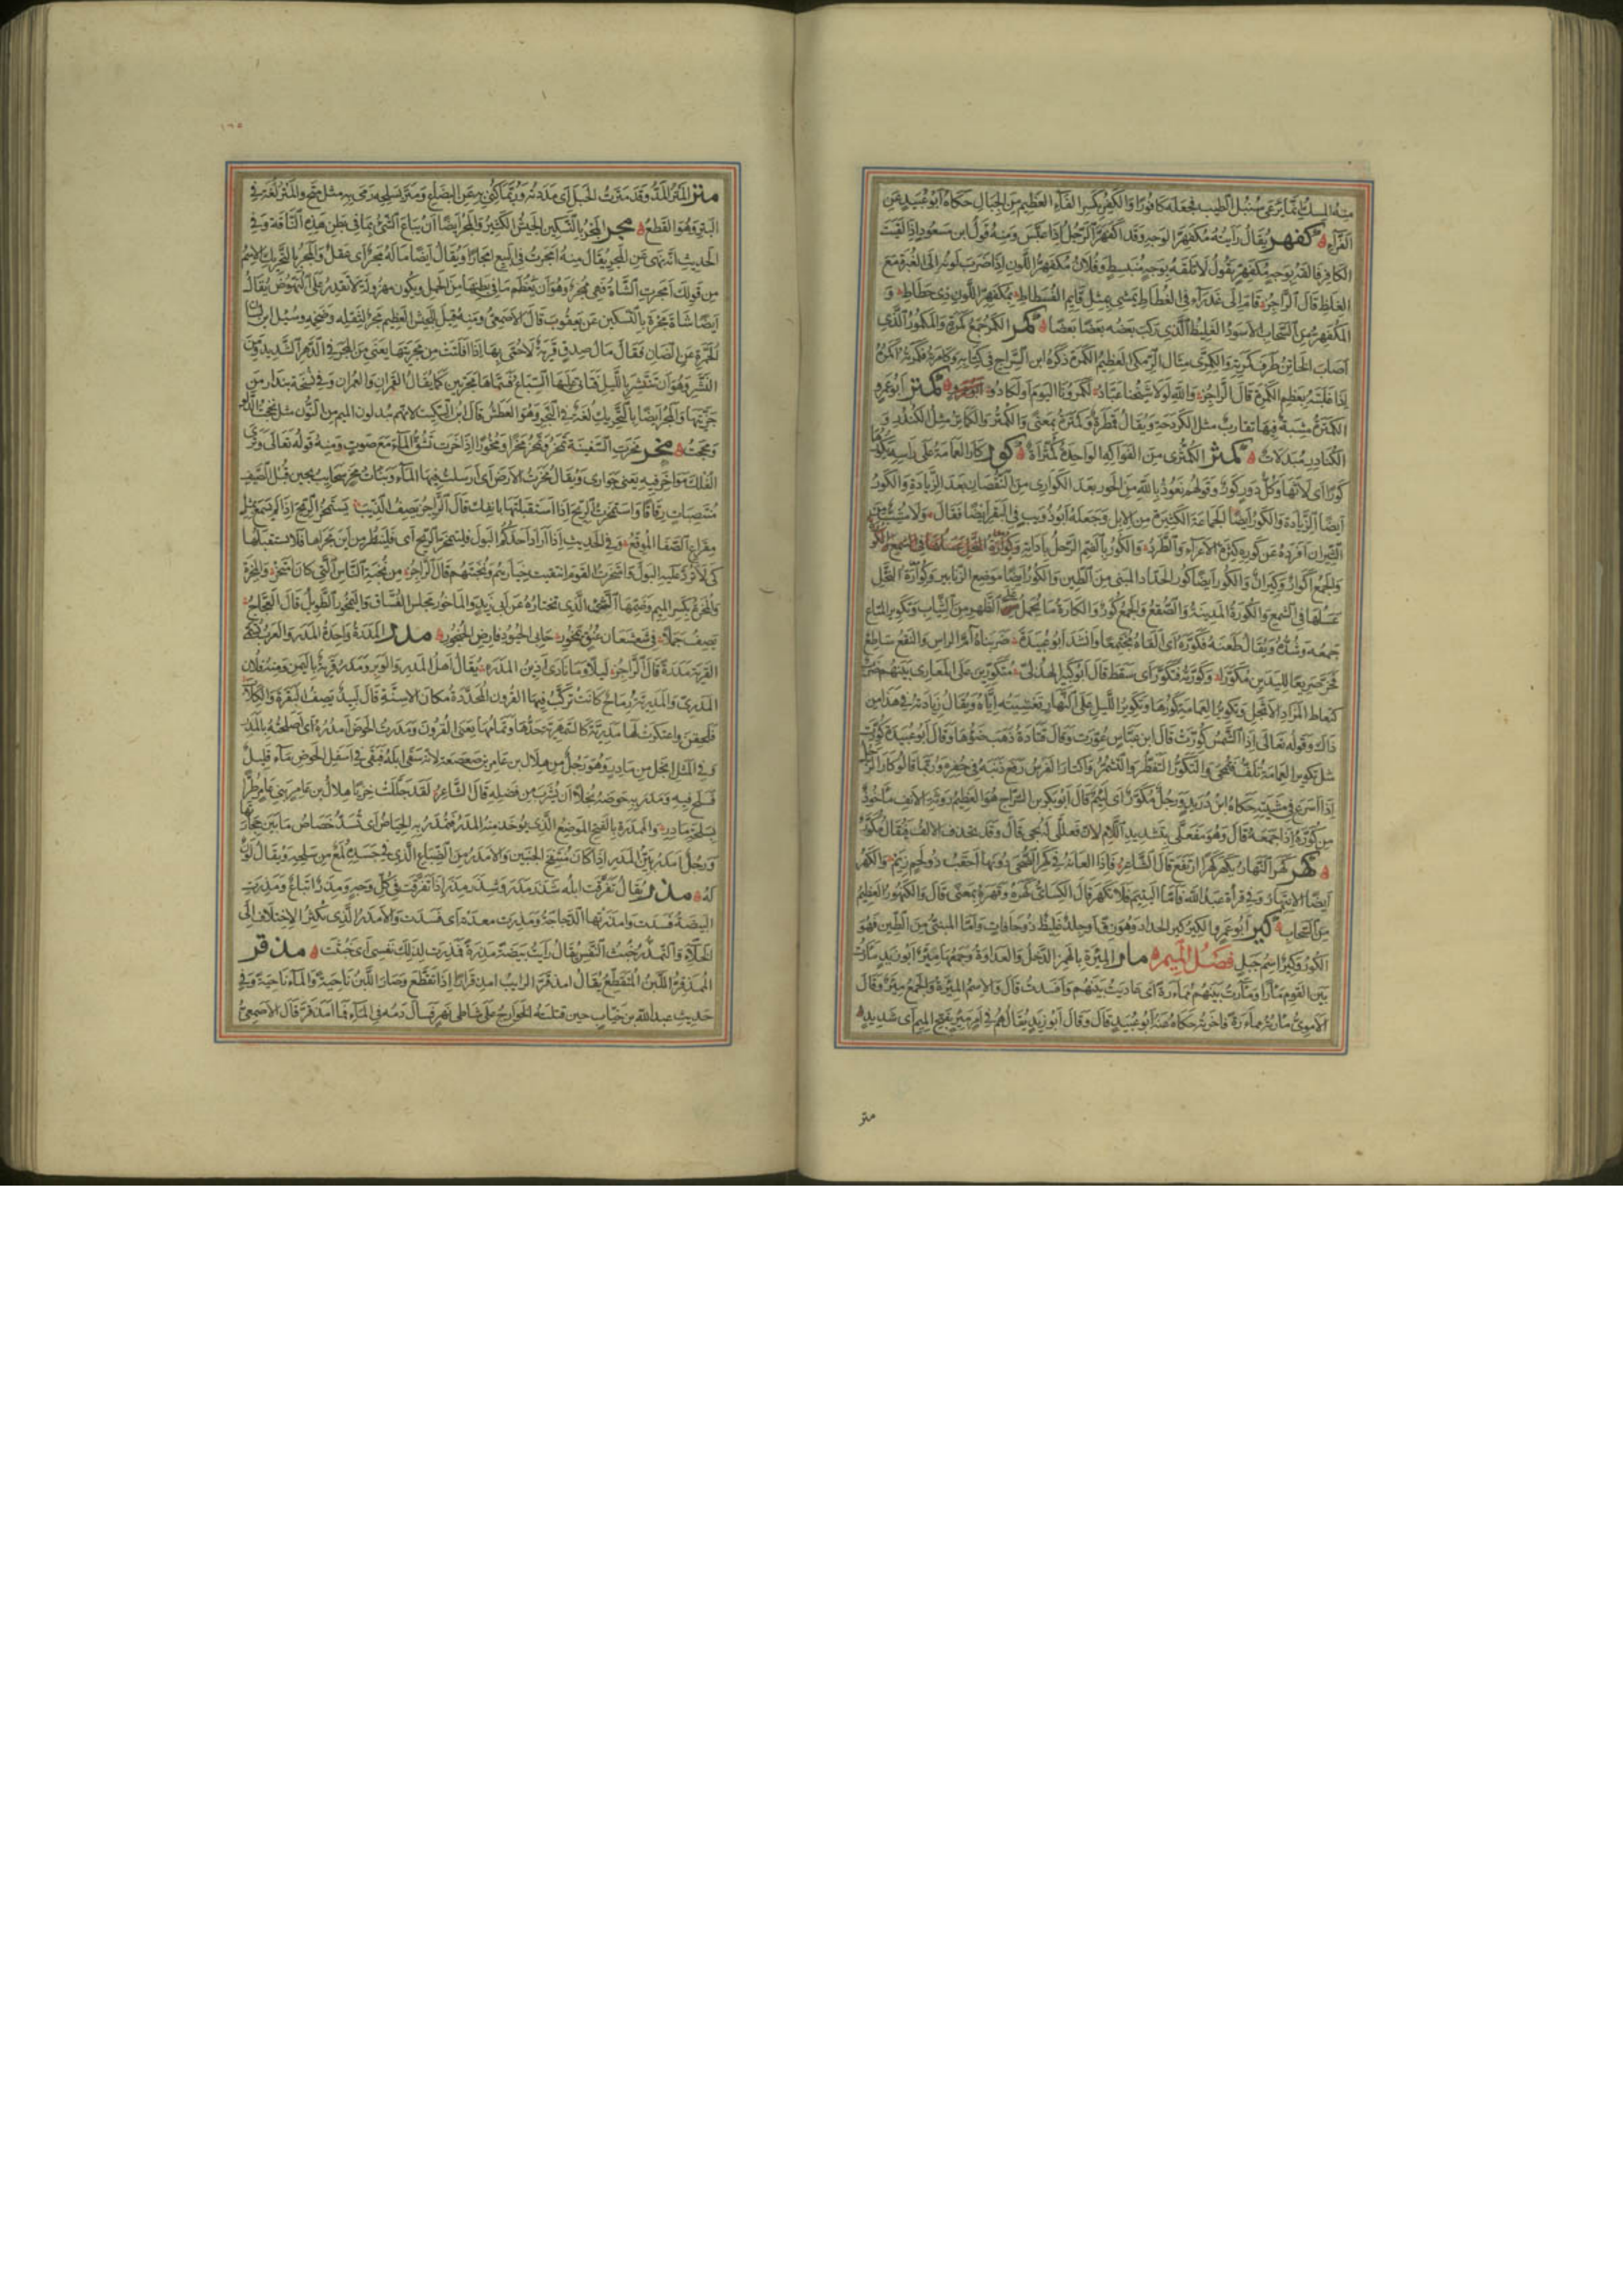 منه المسك انما يرعى سنبل الطيب فجعله كافورا والكفر بكسر الفاء العظيم من الجبال حكاه ابو عبيد عن
الفراء كفهر يقال رايته مكفهر الوجه وقد اكفهر الرجل اذا عبس ومنه قول ابن مسعود اذا لقيت
الكافر فالقه بوجه مكفهر يقول لا تلقه بوجه منبسط وفلان مكفهر اللون اذا ضرب لونه الى الغبرة مع
الغلظ قال الراجز قام الى عذراء في الغطاط يمشي بمثل قايم الفسطاط بمكفهر اللون ذي حطاط و
المكفهر من السحاب الاسود الغليظ الذي ركب بعضه بعضا كمر الكمر جمع كمرة والمكمور الذي
اصاب الخاتن طرف كمرته والكمرى مثال الزمكى العظيم الكمرة ذكره ابن السراج في كتابه وكامرته فكمرته اكمره
اذا غلبته بعظم الكمرة قال الراجز والله لولا شيخنا عباد لكمرونا اليوم او لكادوا كمتر ابو عمرو
الكمترة مشية فيها تقارب مثل الكردحة ويقال قمطرة وكمترة بمعنى والكمتر والكماتر مثل الكندر و
الكنادر مبدلات كمثر الكمثرى من الفواكه الواحدة كمثراة كور كار العمامة على راسه يكورها
كورا اي لاثها وكل دور كور وقولهم نعوذ بالله من الحور بعد الكور اي من النقصان بعد الزيادة والكور
ايضا الزيادة والكور ايضا الجماعة الكثيرة من الابل وجعله ابو ذويب في البقر ايضا فقال ولا شبوب من
الثيران افرده عن كوره كثرة الاغراء والطرد والكور بالضم الرحل باداته
والجمع اكوار وكيران والكور ايضا كور الحداد المبني من الطين والكور ايضا موضع الزنابير وكوارة النحل
عسلها في الشمع والكورة المدينة والصقع والجمع كور والكارة ما يحمل على الظهر من الثياب وتكوير المتاع
جمعه وشده ويقال طعنه فكوره اي القاه مجتمعا وانشد ابو عبيدة ضربناه ام الراس والنقع ساطع
فخر صريعا لليدين مكورا وكورته فتكور اي سقط قال ابو كبير الهذلي متكورين على المعاري بينهم ضرب
كتعطاط المزاد الاثجل وتكوير العمامة كورها وتكوير الليل على النهار تغشيته اياه ويقال زيادته في هذا من
ذاك وقوله تعالى اذا الشمس كورت قال ابن عباس غورت وقال قتادة ذهب ضوءها وقال ابو عبيدة كورت
مثل تكوير العمامة تلف فتمحى والتكور التقطر والتشمر واكتار الفرس رفع ذنبه في حضره وربما قالوا كار الرجل
اذا اسرع في مشيته حكاه ابن دريد ورجل مكورى اي لئيم قال ابو بكر بن السراج هو العظيم روثة الانف ماخوذ
من كوره اذا جمعه قال وهو مفعلى بتشديد اللام لان فعللى لم يجئ قال وقد تحذف الالف فيقال مكور
كهر كهر النهار يكهر كهرا ارتفع قال الشاعر فاذا العانة في كهر الضحى دونها احقب ذو لحم زيم والكهر
ايضا الانتهار وفي قراة عبد الله فاما اليتيم فلا تكهر قال الكسائي كهره وقهره بمعنى قال والكنهور العظيم
من السحاب كير ابو عمرو الكير كير الحداد وهو زق او جلد غليظ ذو حافات واما المبني من الطين فهو
الكور وكير اسم جبل فصل الميم مار المئرة بالهمز الذحل والعداوة وجمعها مئر ابو زيد مارت
بين القوم مارا وماءرت بينهم مماءرة اي عاديت بينهم وافسدت قال والاسم المئرة والجمع مئر وقال
الاموي ماءرته مماءرة فاخرته حكاه عنه ابو عبيد قال وقال ابو زيد يقال هم في امر مئر بفتح الميم اي شديد
متر
١٦٥
متر المتر المد وقد مترت الحبل اي مددته وربما كني به عن البضاع ومتر بسلحه رمى به مثل متح والمتر لغة في
البتر وهو القطع مجر المجر بالتسكين الجيش الكثير والمجر ايضا ان يباع الشئ بما في بطن هذه الناقة وفي
الحديث انه نهى عن المجر يقال منه امجرت في البيع امجارا ويقال ايضا ما له مجر اي عقل والمجر بالتحريك الاسم
من قولك امجرت الشاة فهي ممجر وهو ان يعظم ما في بطنها من الحمل ويكون مهزولة لا تقدر على النهوض يقال
ايضا شاة مجرة بالتسكين عن يعقوب قال الاصمعي ومنه قيل للجيش العظيم مجر لثقله وضخمه وسئل ابن لسان
الحمرة عن الضان فقال مال صدق قرية لا حمى بها اذا افلتت من مجرتيها يعني من المجر في الدهر الشديد ومن
النشر وهو ان تنتشر بالليل فتاتي عليها السباع فسماهما مجرتين كما يقال القمران والعمران وفي نسخة بندار من
جرتيها والمجر ايضا بالتحريك لغة في النجر وهو العطش قال ابن السكيت لانهم يبدلون الميم من النون مثل نخجت الدلو
ومخجت مخر مخرت السفينة تمخر وتمخر مخرا ومخورا اذا جرت تشق الماء مع صوت ومنه قوله تعالى وترى
الفلك مواخر فيه يعني جواري ويقال مخرت الارض اي ارسلت فيها الماء وبنات مخر سحايب يجئن قبل الصيف
منتصبات رقاقا واستمخرت الريح اذا استقبلتها بانفك قال الراجز يصف الذيب يستمخر الريح اذا لم يسمع بمثل
مقراع الصفا الموقع وفي الحديث اذا اراد احدكم البول فليتمخر الريح اي فلينظر من اين مجراها فلا يستقبلها
كي لا ترد عليه البول وامتخرت القوم انتقيت خيارهم ونخبتهم قال الراجز من نخبة الناس التي كان امتخر والمخرة
والمخرة بكسر الميم وضمها الشئ الذي تختاره عن ابي زيد والماخور مجلس الفساق واليمخور الطويل قال العجاج
يصف جملا في شعشعان عنق يمخور حابي الحيود فارض الحنجور مدر المدرة واحدة المدر والعرب تسمي
القرية مدرة قال الراجز ليلا وما نادى اذين المدره يقال اهل المدر والوبر ومدر قرية باليمن ومنه فلان
المدري والمدرية رماح كانت تركب فيها القرون المحددة مكان الاسنة قال لبيد يصف البقرة والكلاب
فلحقن واعتكرت لها مدرية كالسمهرية حدها وتمامها يعني القرون ومدرت الحوض امدره اي اصلحته بالمدر
وفي المثل ابخل من مادر وهو رجل من هلال بن عامر بن صعصعة لانه سقى ابله فبقي في اسفل الحوض ماء قليل
فسلح فيه ومدر به حوضه بخلا ان يشرب من فضله قال الشاعر لقد جللت خزيا هلال بن عامر بني عامر طرا
بسلحة مادر والممدرة بالفتح الموضع الذي يوخذ منه المدر فتمدر به الحياض اي تسد خصاص ما بين حجارتها
ورجل امدر بين المدر اذا كان منتفخ الجنبين والامدر من الضباع الذي في جسده لمع من سلحه ويقال لون
له مذر يقال تفرقت ابله شذر مذر وشذر مذر اذا تفرقت في كل وجه ومذر اتباع ومذرت
البيضة فسدت وامذرتها الدجاجة ومذرت معدته اي فسدت والامذر الذي يكثر الاختلاف الى
الخلاء والتمذر خبث النفس يقال رايت بيضة مذرة فمذرت لذلك نفسي اي خبثت مذقر
الممذقر اللبن المتقطع يقال امذقر الرايب امذقرارا اذا تقطع وصار اللبن ناحية والماء ناحية وفي
حديث عبد الله بن خباب حين قتلته الخوارج على شاطئ نهر فسال دمه في الماء فما امذقر قال الاصمعي